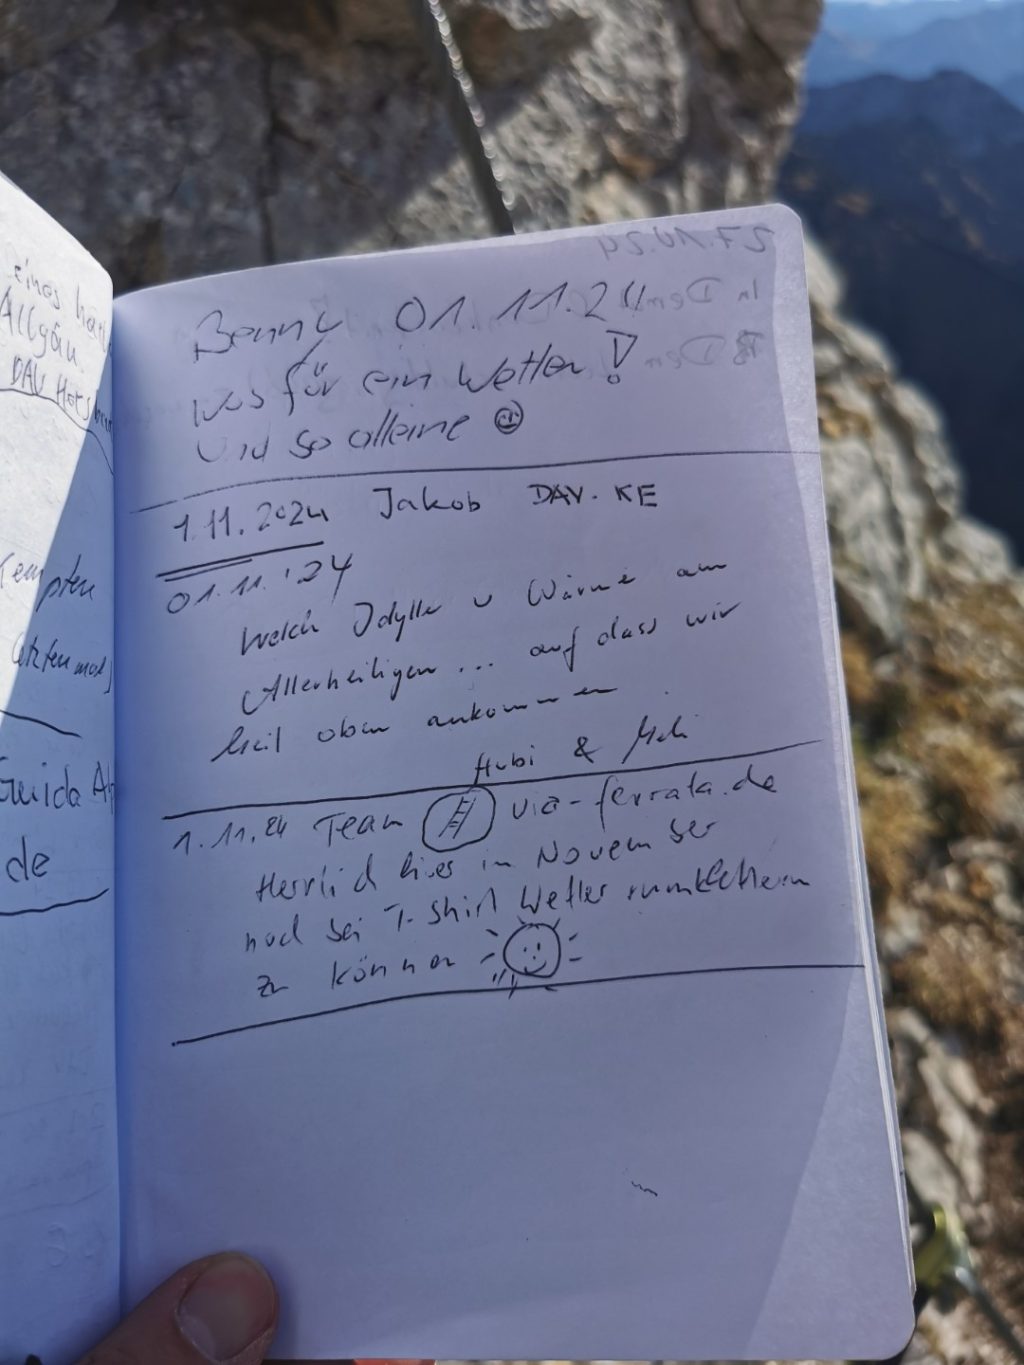 eines
Allgäu
DAV
Kempten
letzten mal
Guida
de
Benny 01.11.24
was für ein Wetter!
Und so alleine
1.11.2024 Jakob DAV-KE
01.11.'24
Welch Idylle u Wärme an
Allerheiligen ... auf dass wir
heil oben ankommen.
Hubi &
1.11.24 Team via-ferrata.de
Herrlich hier im November
noch bei T-Shirt Wetter rumklettern
zu können